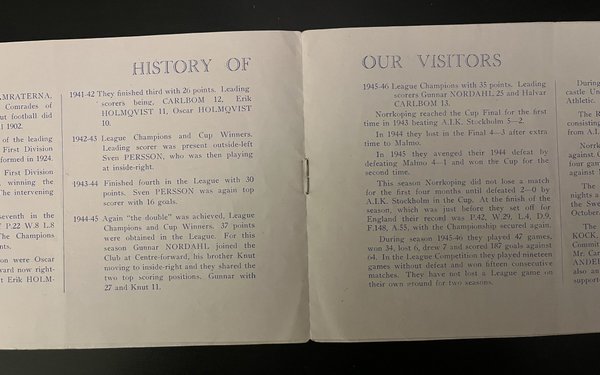 HISTORY OF
MRATERNA,
Comrades of
but football did
1902.
of the leading
First Division
formed in 1924.
First Division
winning the
The intervening
seventh in the
P.22 W.8 L.8
The Champions
were Oscar
now right-
Erik HOLM-
1941-42 They finished third with 26 points. Leading
scorers being, CARLBOM 12, Erik
HOLMQVIST 11, Oscar HOLMQVIST
10.
1942-43 League Champions and Cup Winners.
Leading scorer was present outside-left
Sven PERSSON, who was then playing
at inside-right.
1943-44 Finished fourth in the League with 30
points. Sven PERSSON was again top
scorer with 16 goals.
1944-45 Again "the double" was achieved, League
Champions and Cup Winners. 37 points
were obtained in the League. For this
season Gunnar NORDAHL joined the
Club at Centre-forward, his brother Knut
moving to inside-right and they shared the
two top scoring positions. Gunnar with
27 and Knut 11.
OUR VISITORS
1945-46 League Champions with 35 points. Leading
scorers Gunnar NORDAHL 25 and Halvar
CARLBOM 13.
Norrkoping reached the Cup Final for the first
time in 1943 beating A.I.K. Stockholm 5—2.
In 1944 they lost in the Final 4—3 after extra
time to Malmo.
In 1945 they avenged their 1944 defeat by
defeating Malmo 4—1 and won the Cup for the
second time.
This season Norrkoping did not lose a match
for the first four months until defeated 2—0 by
A.I.K. Stockholm in the Cup. At the finish of the
season, which was just before they set off for
England their record was P.42, W.29, L.4, D.9,
F.148, A.55, with the Championship secured again.
During season 1945-46 they played 47 games,
won 34, lost 6, drew 7 and scored 187 goals against
64. In the League Competition they played nineteen
games without defeat and won fifteen consecutive
matches. They have not lost a League game on
their own ground for two seasons.
During
castle Un
Athletic.
The R
consisting
from
Norrk
against
four gam
against
The
nights a
the Swe
October
The
KOCK,
Committ
Mr. Car
ANDER
also an
support